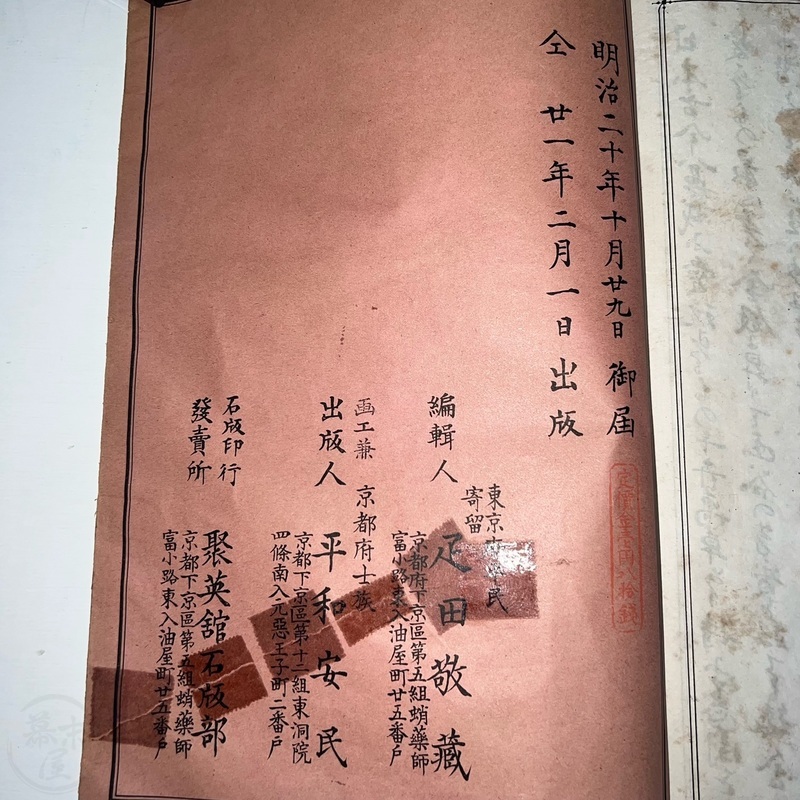 明治二十年十月廿九日御届
仝 廿一年二月一日出版
編輯人
東京
寄留
疋田敬藏
京都府下京區第五組蛸藥師
富小路東入油屋町廿五番戸
画工兼
出版人
京都府士族
平和安民
京都下京區第十二組東洞院
四條南入元惡王子町二番戸
石版印行
發賣所
聚英舘石版部
京都下京區第五組蛸藥師
富小路東入油屋町廿五番戸